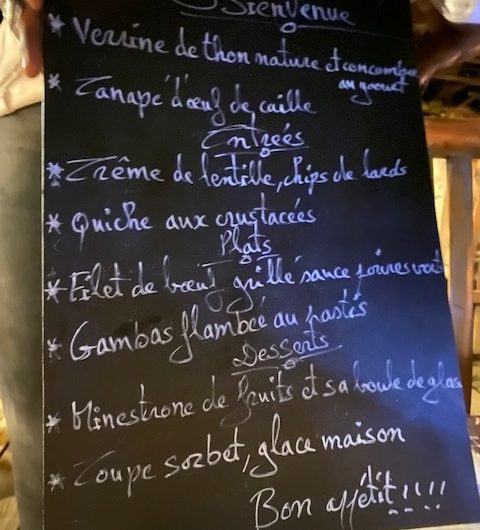 Bienvenue
* Verrine de thon nature et concombre
au yaourt
* Canapé d'œuf de caille
Entrées
* Crême de lentille, chips de lards
* Quiche aux crustacées
Plats
* Filet de bœuf grillé sauce poivres verts
* Gambas flambée au pastis
Desserts
* Minestrone de fruits et sa boule de glac
* Coupe sorbet, glace maison
Bon appétit!!!!